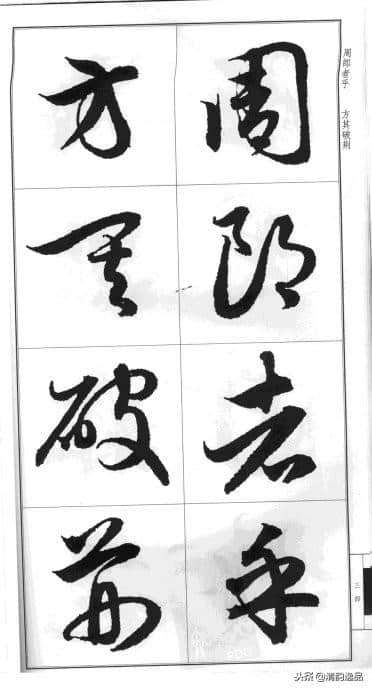 周郎者乎
方其破荆
周郎者乎 方其破荆
三四
头条@清韵逸品